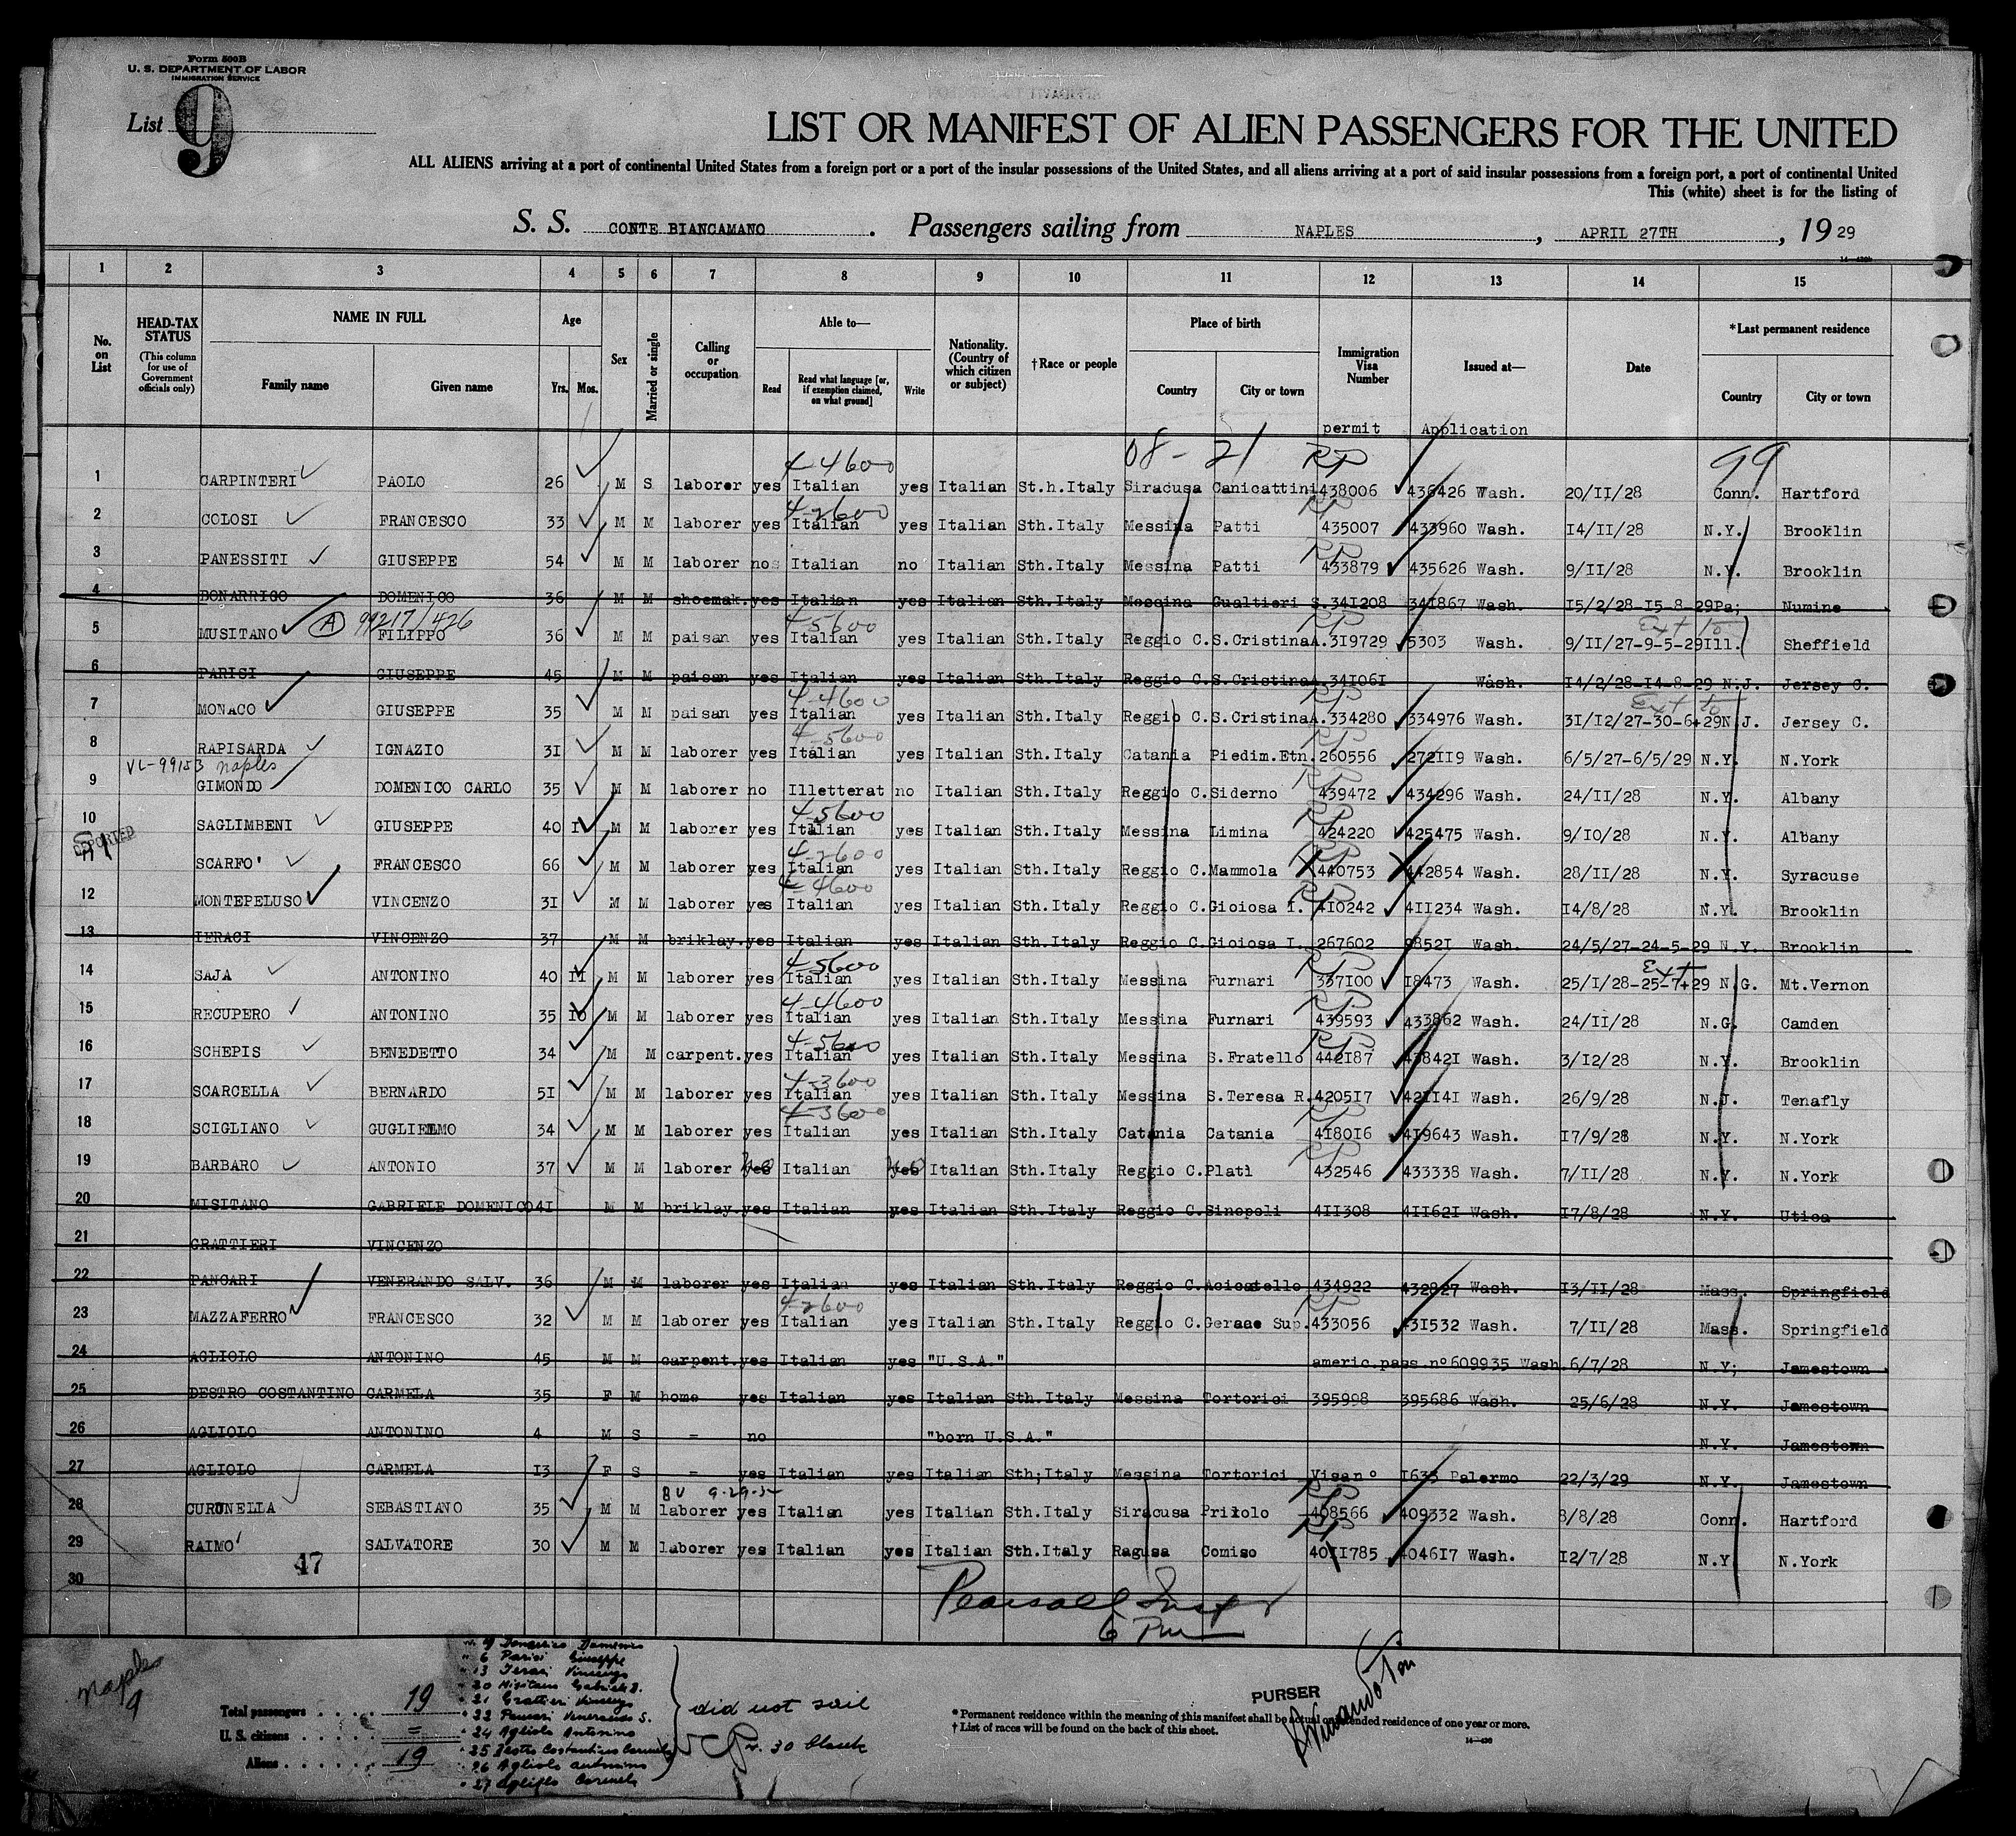 Form 500B
U. S. DEPARTMENT OF LABOR
IMMIGRATION SERVICE
List 9
LIST OR MANIFEST OF ALIEN PASSENGERS FOR THE UNITED
ALL ALIENS arriving at a port of continental United States from a foreign port or a port of the insular possessions of the United States, and all aliens arriving at a port of said insular possessions from a foreign port, a port of continental United
This (white) sheet is for the listing of
S. S. CONTE BIANCAMANO . Passengers sailing from NAPLES , APRIL 27TH , 19 29
1 2 3 4 5 6 7 8 9 10 11 12 13 14 15
No. on List
HEAD-TAX STATUS (This column for use of Government officials only)
NAME IN FULL Family name Given name
Age Yrs. Mos.
Sex
Married or single
Calling or occupation
Able to— Read Read what language [or, if exemption claimed, on what ground] Write
Nationality. (Country of which citizen or subject)
†Race or people
Place of birth Country City or town
Immigration Visa Number
Issued at—
Date
*Last permanent residence Country City or town
permit Application
08 - 21 RP 99
4-4600
1 CARPINTERI PAOLO 26 M S laborer yes Italian yes Italian St.h.Italy Siracusa Canicattini 438006 436426 Wash. 20/II/28 Conn. Hartford
4-2600 RP
2 COLOSI FRANCESCO 33 M M laborer yes Italian yes Italian Sth.Italy Messina Patti 435007 433960 Wash. I4/II/28 N.Y. Brooklin
RP
3 PANESSITI GIUSEPPE 54 M M laborer no Italian no Italian Sth.Italy Messina Patti 433879 435626 Wash. 9/II/28 N.Y. Brooklin
4 BONARRIGO DOMENICO 36 M M shoemak. yes Italian yes Italian Sth.Italy Messina Gualtieri S. 34I208 34I867 Wash. I5/2/28-I5-8-29 Pa; Numine
A 99217/426 4-5600 RP Ext to
5 MUSITANO FILIPPO 36 M M paisan yes Italian yes Italian Sth.Italy Reggio C. S.CristinaA. 3I9729 5303 Wash. 9/II/27-9-5-29 Ill. Sheffield
6 PARISI GIUSEPPE 45 M M paisan yes Italian yes Italian Sth.Italy Reggio C. S.CristinaA. 34I06I Wash. I4/2/28-I4-8-29 N.J. Jersey C.
4-4600 RP Ext to
7 MONACO GIUSEPPE 35 M M paisan yes Italian yes Italian Sth.Italy Reggio C. S.CristinaA. 334280 334976 Wash. 3I/I2/27-30-6-29 N.J. Jersey C.
4-5600 RP
8 RAPISARDA IGNAZIO 3I M M laborer yes Italian yes Italian Sth.Italy Catania Piedim.Etn. 260556 272II9 Wash. 6/5/27-6/5/29 N.Y. N.York
VL-99153 Naples RP
9 GIMONDO DOMENICO CARLO 35 M M laborer no Illetterat no Italian Sth.Italy Reggio C. Siderno 439472 434296 Wash. 24/II/28 N.Y. Albany
4-5600 RP
10 SAGLIMBENI GIUSEPPE 40 I M M laborer yes Italian yes Italian Sth.Italy Messina Limina 424220 425475 Wash. 9/I0/28 N.Y. Albany
DEPORTED 4-2600 RP
11 SCARFO' FRANCESCO 66 M M laborer yes Italian yes Italian Sth.Italy Reggio C. Mammola 440753 442854 Wash. 28/II/28 N.Y. Syracuse
4-4600 RP
12 MONTEPELUSO VINCENZO 3I M M laborer yes Italian yes Italian Sth.Italy Reggio C. Gioiosa I. 4I0242 4II234 Wash. I4/8/28 N.Y. Brooklin
13 IERACI VINCENZO 37 M M briklay. yes Italian yes Italian Sth.Italy Reggio C. Gioiosa I. 267602 9852I Wash. 24/5/27-24-5-29 N.Y. Brooklin
4-5600 RP Ext
14 SAJA ANTONINO 40 II M M laborer yes Italian yes Italian Sth.Italy Messina Furnari 337I00 I8473 Wash. 25/I/28-25-7-29 N.G. Mt.Vernon
4-4600 RP
15 RECUPERO ANTONINO 35 I0 M M laborer yes Italian yes Italian Sth.Italy Messina Furnari 439593 433862 Wash. 24/II/28 N.G. Camden
4-5600 RP
16 SCHEPIS BENEDETTO 34 M M carpent. yes Italian yes Italian Sth.Italy Messina S.Fratello 442I87 43842I Wash. 3/I2/28 N.Y. Brooklin
4-3600
17 SCARCELLA BERNARDO 5I M M laborer yes Italian yes Italian Sth.Italy Messina S.Teresa R. 4205I7 42II4I Wash. 26/9/28 N.J. Tenafly
4-3600 RP
18 SCIGLIANO GUGLIELMO 34 M M laborer yes Italian yes Italian Sth.Italy Catania Catania 4I80I6 4I9643 Wash. I7/9/28 N.Y. N.York
RP
19 BARBARO ANTONIO 37 M M laborer no Italian no Italian Sth.Italy Reggio C. Platì 432546 433338 Wash. 7/II/28 N.Y. N.York
20 MISITANO GABRIELE DOMENICO 4I M M briklay. yes Italian yes Italian Sth.Italy Reggio C. Sinopoli 4II308 4II62I Wash. I7/8/28 N.Y. Utica
21 GRATTIERI VINCENZO
22 PANCARI VENERANDO SALV. 36 M M laborer yes Italian yes Italian Sth.Italy Reggio C. Acicatello 434922 432827 Wash. I3/II/28 Mass. Springfield
4-2600 RP
23 MAZZAFERRO FRANCESCO 32 M M laborer yes Italian yes Italian Sth.Italy Reggio C. Gerace Sup. 433056 43I532 Wash. 7/II/28 Mass. Springfield
24 AGLIOLO ANTONINO 45 M M carpent. yes Italian yes "U.S.A." americ.pass.nº 609935 Wash. 6/7/28 N.Y; Jamestown
25 DESTRO COSTANTINO CARMELA 35 F M home yes Italian yes Italian Sth.Italy Messina Tortorici 395998 395686 Wash. 25/6/28 N.Y. Jamestown
26 AGLIOLO ANTONINO 4 M S - no "born U.S.A." N.Y. Jamestown
27 AGLIOLO CARMELA I3 F S - yes Italian yes Italian Sth;Italy Messina Tortorici Visa nº I635 Palermo 22/3/29 N.Y. Jamestown
RP
28 CURUNELLA SEBASTIANO 35 M M laborer yes Italian yes Italian Sth.Italy Siracusa Priiolo 408566 409332 Wash. 8/8/28 Conn. Hartford
RP
29 RAIMO' SALVATORE 30 M M laborer yes Italian yes Italian Sth.Italy Ragusa Comiso 40II785 4046I7 Wash. I2/7/28 N.Y. N.York
17
30
Pearsall Inspr
Naples
9
Total passengers 19
U. S. citizens =
Aliens 19
" 6 Parisi Giuseppe
" 13 Ieraci Vincenzo
" 20 Misitano Gabriele D.
" 21 Grattieri Vincenzo
" 22 Pancari Venerando S.
" 24 Agliolo Antonino
" 25 Destro Costantino Carmela
" 26 Agliolo Antonino
" 27 Agliolo Carmela
did not sail
n. 30 blank
PURSER
* Permanent residence within the meaning of this manifest shall be actual or intended residence of one year or more.
† List of races will be found on the back of this sheet.